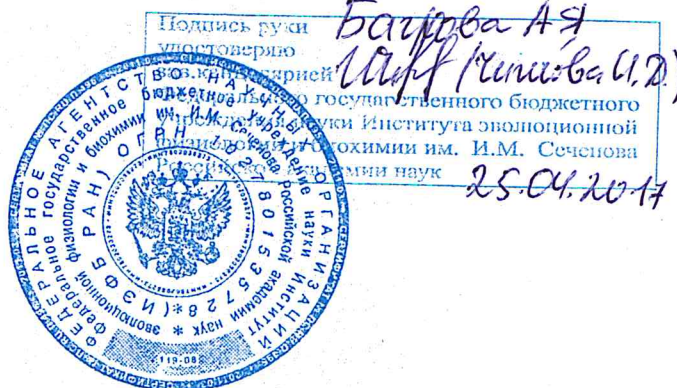 Подпись руки Багрова А Я
удостоверяю
Зав.канцелярией
Федерального государственного бюджетного
учреждения науки Института эволюционной
физиологии и биохимии им. И.М. Сеченова
Российской академии наук 25.04.2017
ФЕДЕРАЛЬНОЕ АГЕНТСТВО НАУЧНЫХ ОРГАНИЗАЦИЙ
Федеральное государственное бюджетное учреждение науки Институт
эволюционной физиологии и биохимии им. И.М. Сеченова Российской академии наук *
(ИЭФБ РАН) ОГРН
119-08